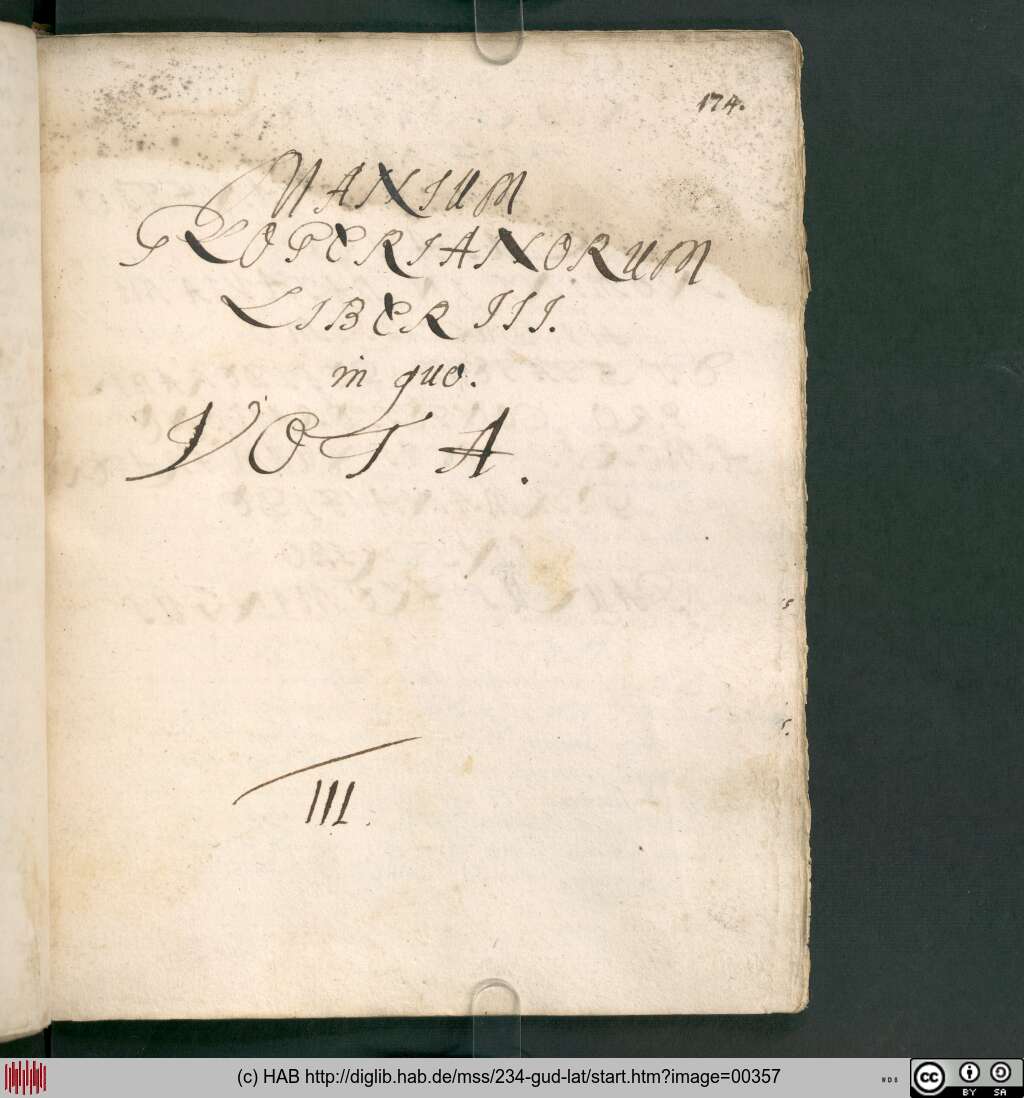 174.
NANIUM
PROPERIANORUM
LIBER III.
in quo.
VOTA.
III.
(c) HAB http://diglib.hab.de/mss/234-gud-lat/start.htm?image=00357
cc
BY SA